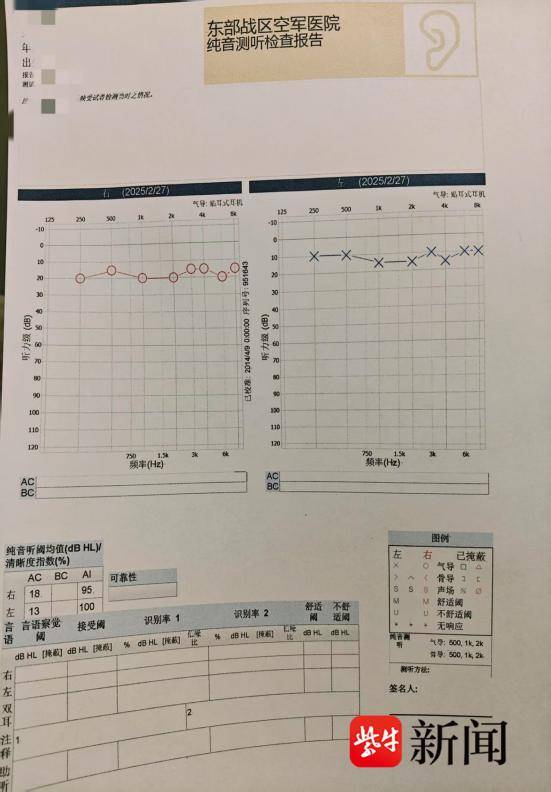 东部战区空军医院
纯音测听检查报告
年
出
报告
测试
映受试者检测当时之情况。
右 (2025/2/27)
左 (2025/2/27)
气导: 贴耳式耳机
气导: 贴耳式耳机
125 250 500 1k 2k 4k 8k
125 250 500 1k 2k 4k 8k
-10
0
10
20
30
40
50
60
70
80
90
100
110
120
-10
0
10
20
30
40
50
60
70
80
90
100
110
120
听力级 (dB)
听力级 (dB)
已校准: 2014/4/9 0:00:00 序列号: 951643
750 1.5k 3k 6k
频率(Hz)
750 1.5k 3k 6k
频率(Hz)
AC
BC
AC
BC
纯音听阈均值(dB HL)/
清晰度指数(%)
AC BC AI
右 18 95
左 13 100
可靠性
言语
言语察觉阈 接受阈 识别率 1 识别率 2 舒适阈 不舒适阈
dB HL [掩蔽] dB HL [掩蔽] % dB HL [掩蔽] 信噪比 % dB HL [掩蔽] 信噪比 dB HL dB HL
右
左
双耳
注释
1
2
助听
图例
左 右 已掩蔽
气导
骨导
声场
M M 舒适阈
U U 不舒适阈
无响应
纯音测听
气导: 500, 1k, 2k
骨导: 500, 1k, 2k
测听方法:
签名人:
紫牛新闻